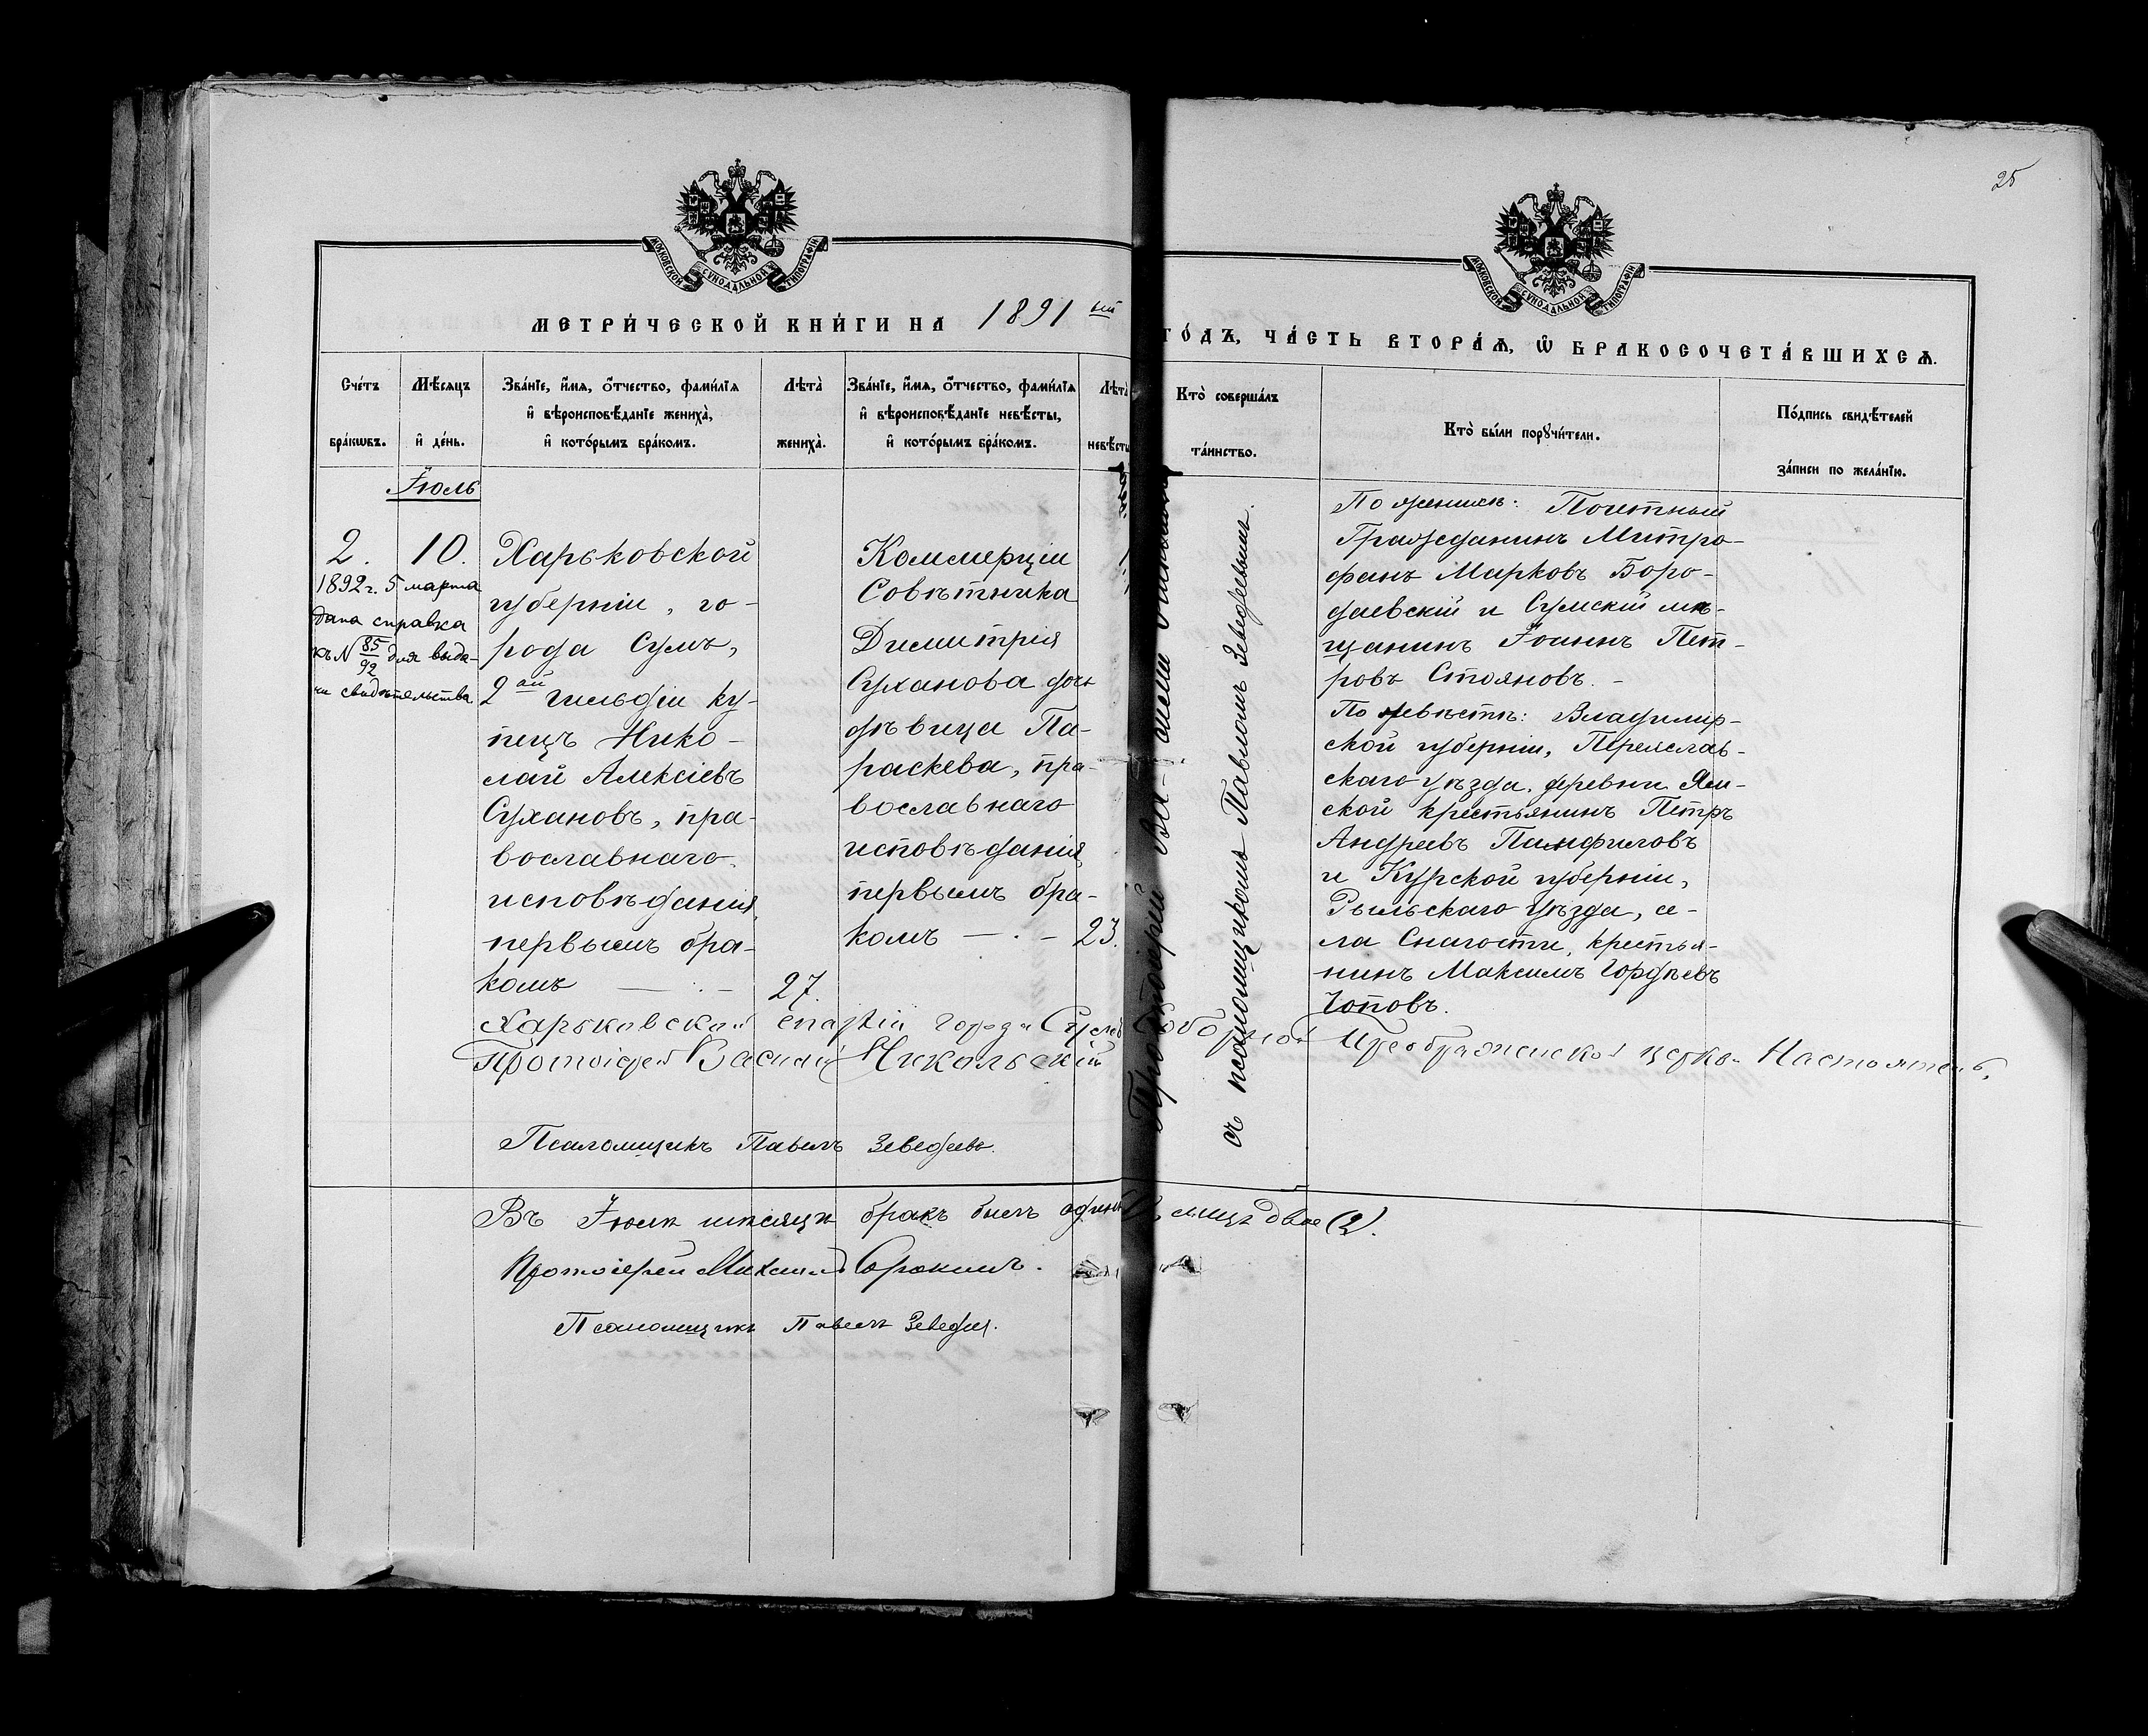 25
МОСКОВСКОЙ СѴНОДАЛЬНОЙ ТИПОГРАФІИ
МОСКОВСКОЙ СѴНОДАЛЬНОЙ ТИПОГРАФІИ
МЕТРИ́ЧЕСКОЙ КНИ́ГИ НА 1891 ый
ГО́ДЪ, ЧА́СТЬ ВТОРА́Ѧ, Ѡ҆ БРАКОСОЧЕТА́ВШИХСѦ.
Сче́тъ
бра́кѡвъ.
Мѣ́сяцъ
и҆ де́нь.
Зва́нїе, и҆́мѧ, ѻ҆́тчество, фами́лїѧ
и҆ вѣроисповѣ́данїе жениха̀,
и҆ кото́рымъ бра́комъ.
Лѣта̀
жениха̀.
Зва́нїе, и҆́мѧ, ѻ҆́тчество, фами́лїѧ
и҆ вѣроисповѣ́данїе невѣ́сты,
и҆ кото́рымъ бра́комъ.
Лѣта̀
невѣ́сты
Кто̀ соверша́лъ
та́инство.
Кто̀ бы́ли порꙋчи́тели.
По́дпись свидѣ́телей
за́писи по жела́нїю.
Іюль
2. 10.
1892 г. 5 марта
дана справка
къ N 85/92 для выда-
чи свидѣтельства
Харьковской
губерніи, го-
рода Сумъ,
2ой гильдіи ку-
пецъ Нико-
лай Алексіевъ
Сухановъ, пра-
вославнаго
исповѣданія,
первымъ бра-
комъ — . —
27.
Коммерціи
Совѣтника
Димитрія
Суханова дочь
дѣвица Па-
раскева, пра-
вославнаго
исповѣданія,
первымъ бра-
комъ — . —
23.
Протоіерей
съ псаломщикомъ Павломъ Зеведеевымъ.
По женихѣ: Почетный
Гражданинъ Митро-
фанъ Марковъ Боро-
даевскій и Сумскій мѣ-
щанинъ Іоаннъ Пет-
ровъ Стояновъ. –
По невѣстѣ: Владимір-
ской губерніи, Переяслав-
скаго уѣзда, деревни Ям-
ской крестьянинъ Петръ
Андреевъ Памфиловъ
и Курской губерніи,
Рыльскаго уѣзда, се-
ла Снагости, крестья-
нинъ Максимъ Гордѣевъ
Харьковской епархіи города Сумъ Соборной Преображенской церкви Настоятель,
Протоіерей Василій Никольскій
Псаломщикъ Павелъ Зеведеевъ.
Въ Іюлѣ мѣсяцѣ бракъ былъ одинъ лицъ двое (2).
Протоіерей Михаилъ Сорокинъ.
Псаломщикъ Павелъ Зеведеев.